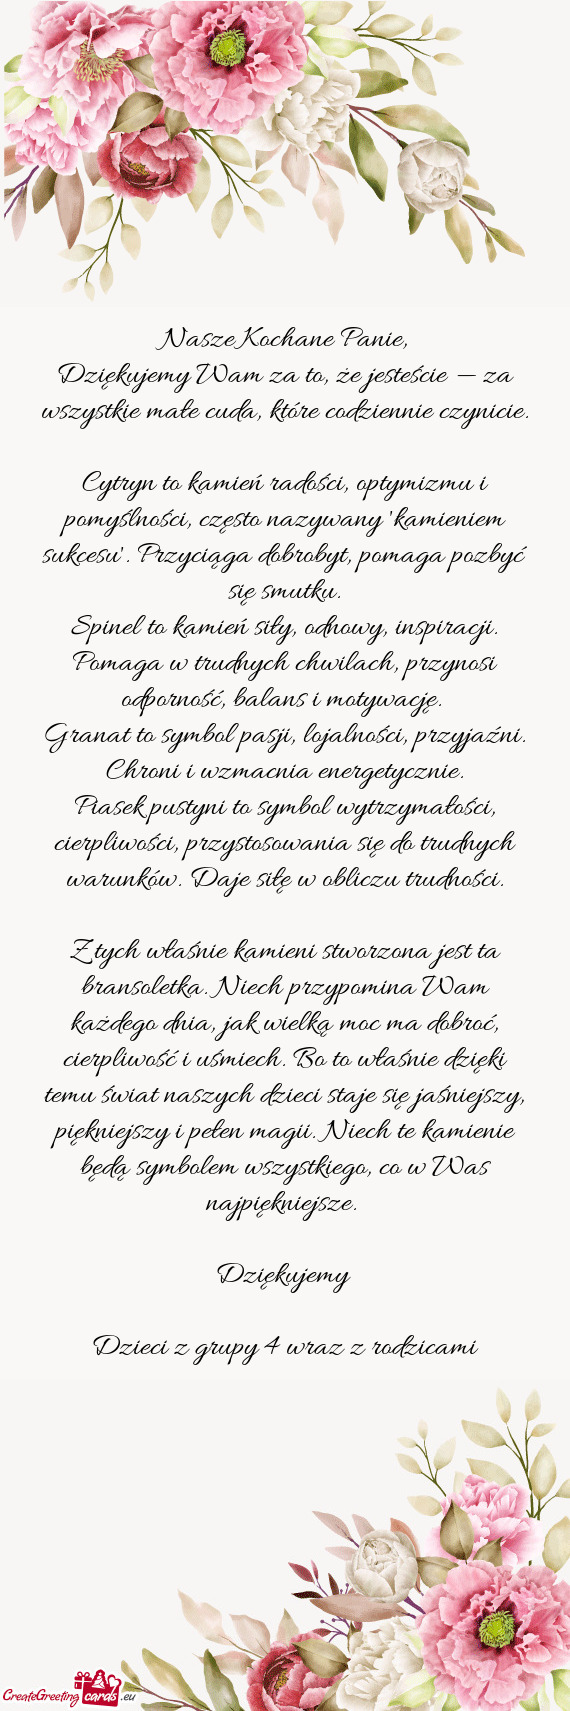 Nasze Kochane Panie,
Dziękujemy Wam za to, że jesteście – za
wszystkie małe cuda, które codziennie czynicie.

Cytryn to kamień radości, optymizmu i
pomyślności, często nazywany 'kamieniem
sukcesu'. Przyciąga dobrobyt, pomaga pozbyć
się smutku.
Spinel to kamień siły, odnowy, inspiracji.
Pomaga w trudnych chwilach, przynosi
odporność, balans i motywację.
Granat to symbol pasji, lojalności, przyjaźni.
Chroni i wzmacnia energetycznie.
Piasek pustyni to symbol wytrzymałości,
cierpliwości, przystosowania się do trudnych
warunków. Daje siłę w obliczu trudności.

Z tych właśnie kamieni stworzona jest ta
bransoletka. Niech przypomina Wam
każdego dnia, jak wielką moc ma dobroć,
cierpliwość i uśmiech. Bo to właśnie dzięki
temu świat naszych dzieci staje się jaśniejszy,
piękniejszy i pełen magii. Niech te kamienie
będą symbolem wszystkiego, co w Was
najpiękniejsze.

Dziękujemy

Dzieci z grupy 4 wraz z rodzicami
CreateGreeting cards .eu